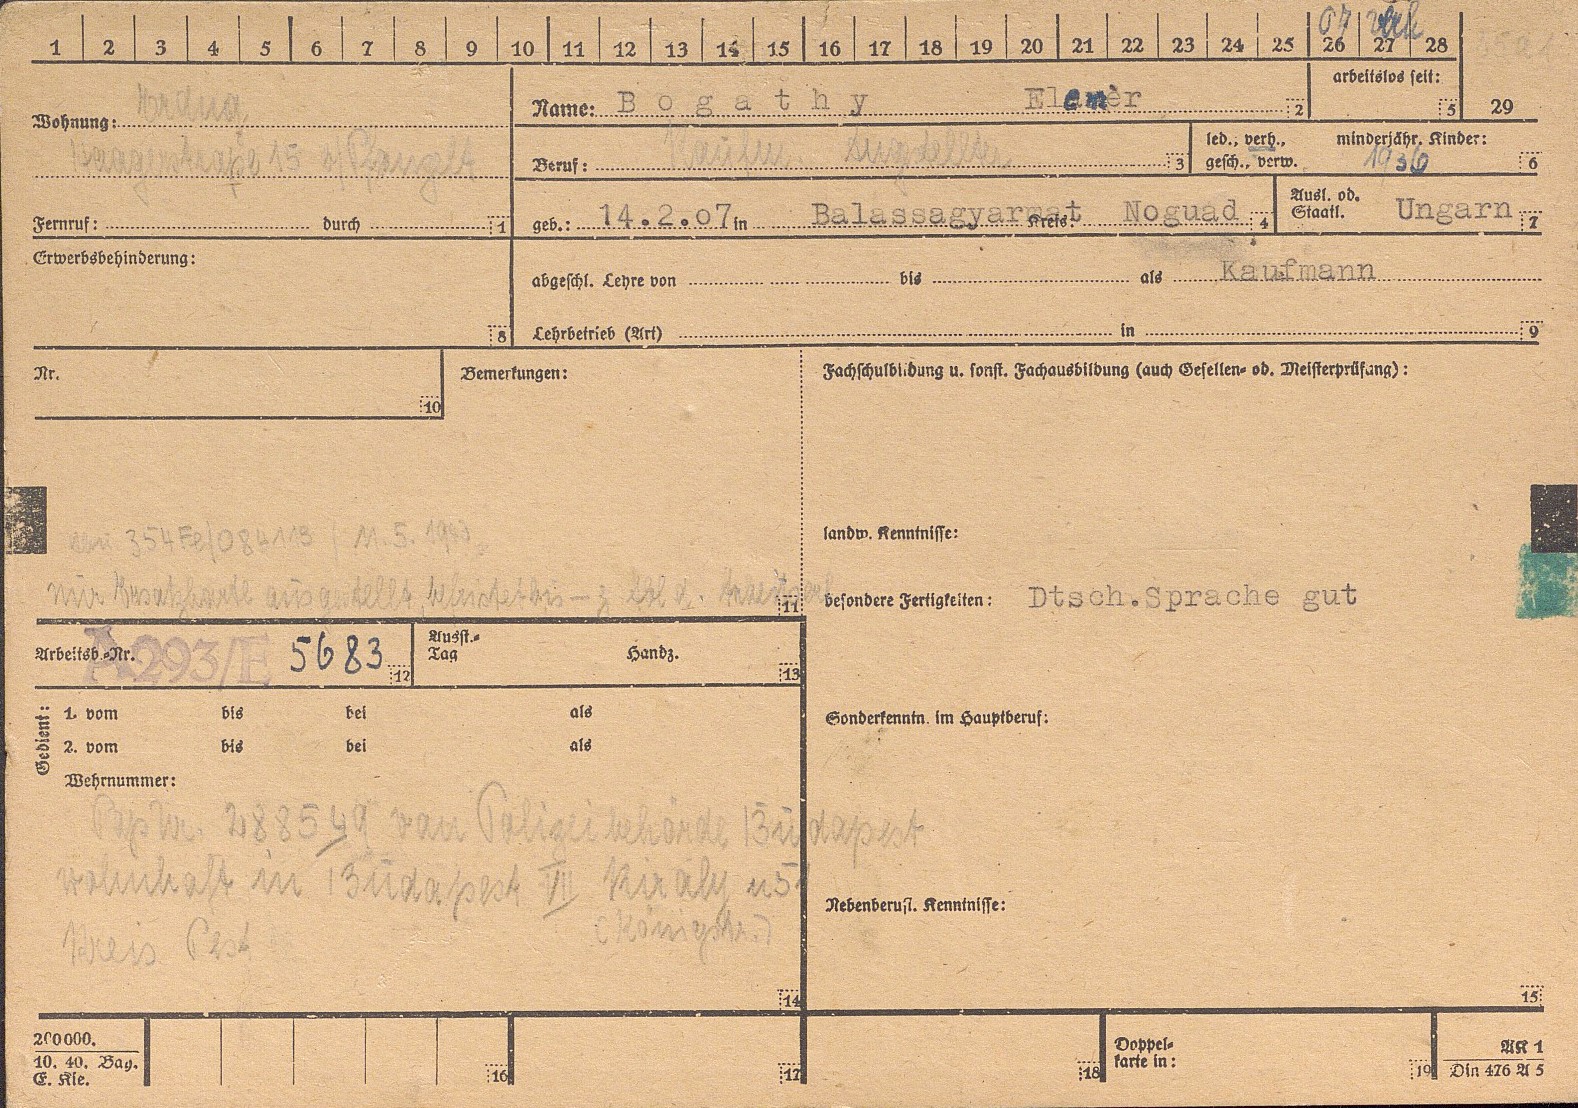 1 2 3 4 5 6 7 8 9 10 11 12 13 14 15 16 17 18 19 20 21 22 23 24 25 26 27 28
07
arbeitslos seit:
5
29
Wohnung:
Name: Bogathy Elemèr 2
15
Beruf: 3
led., verh., gesch., verw.
minderjähr. Kinder:
1936
6
Fernruf: durch 1
geb.: 14.2.07 in Balassagyarmat Kreis: Noguad 4
Ausl. od. Staatl. Ungarn 7
Erwerbsbehinderung:
8
abgeschl. Lehre von bis als Kaufmann
Lehrbetrieb (Art) in 9
Nr.
10
Bemerkungen:
Fachschulbildung u. sonst. Fachausbildung (auch Gesellen- od. Meisterprüfung):
354Fe/084113 / 11.5.1943
nur Ersatzkarte ausgestellt, 11
landw. Kenntnisse:
besondere Fertigkeiten: Dtsch.Sprache gut
Arbeitsb.-Nr. A293/E 5683 12
Ausst.-Tag Handz. 13
Gedient:
1. vom bis bei als
2. vom bis bei als
Wehrnummer:
288549 von Polizeibehörde Budapest
wohnhaft in Budapest VII Király u 5
(Königstr.)
Kreis Pest
14
Sonderkenntn. im Hauptberuf:
Nebenberufl. Kenntnisse:
15
200000.
10. 40. Bag.
E. Kle.
16
17
18
Doppelkarte in:
19
AK 1
Din 476 A 5